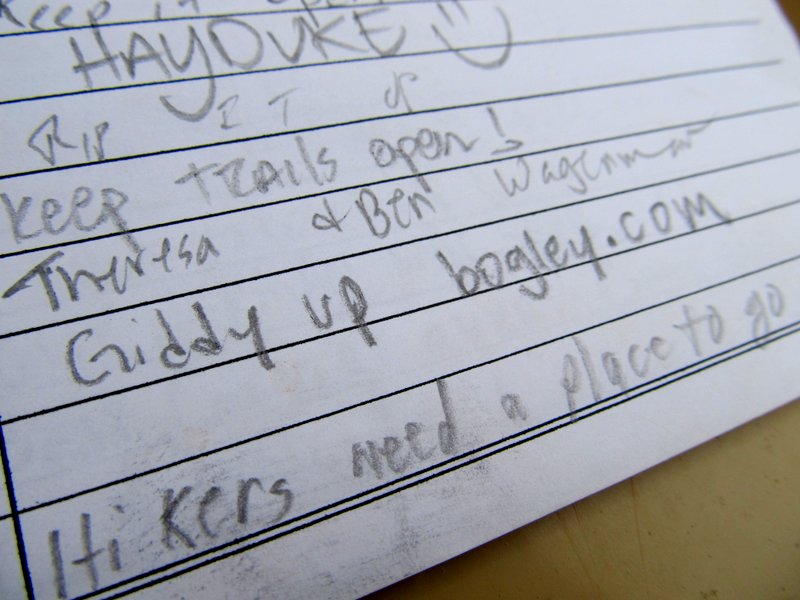 Keep it open
HAYDUKE
RIP IT UP
Keep trails open!
Theresa & Ben Wagenman
Giddy up bogley.com
Hikers need a place to go